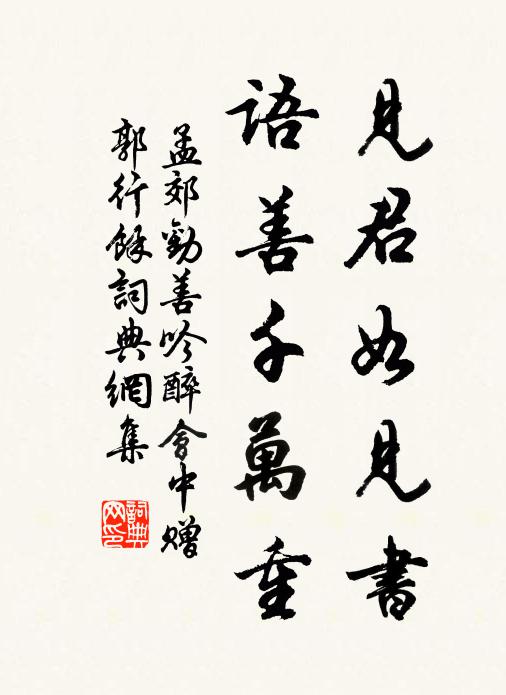 見君如見書
語善千萬重
孟郊勸善吟醉會中贈
郭行餘詞典網集
詞典
网印